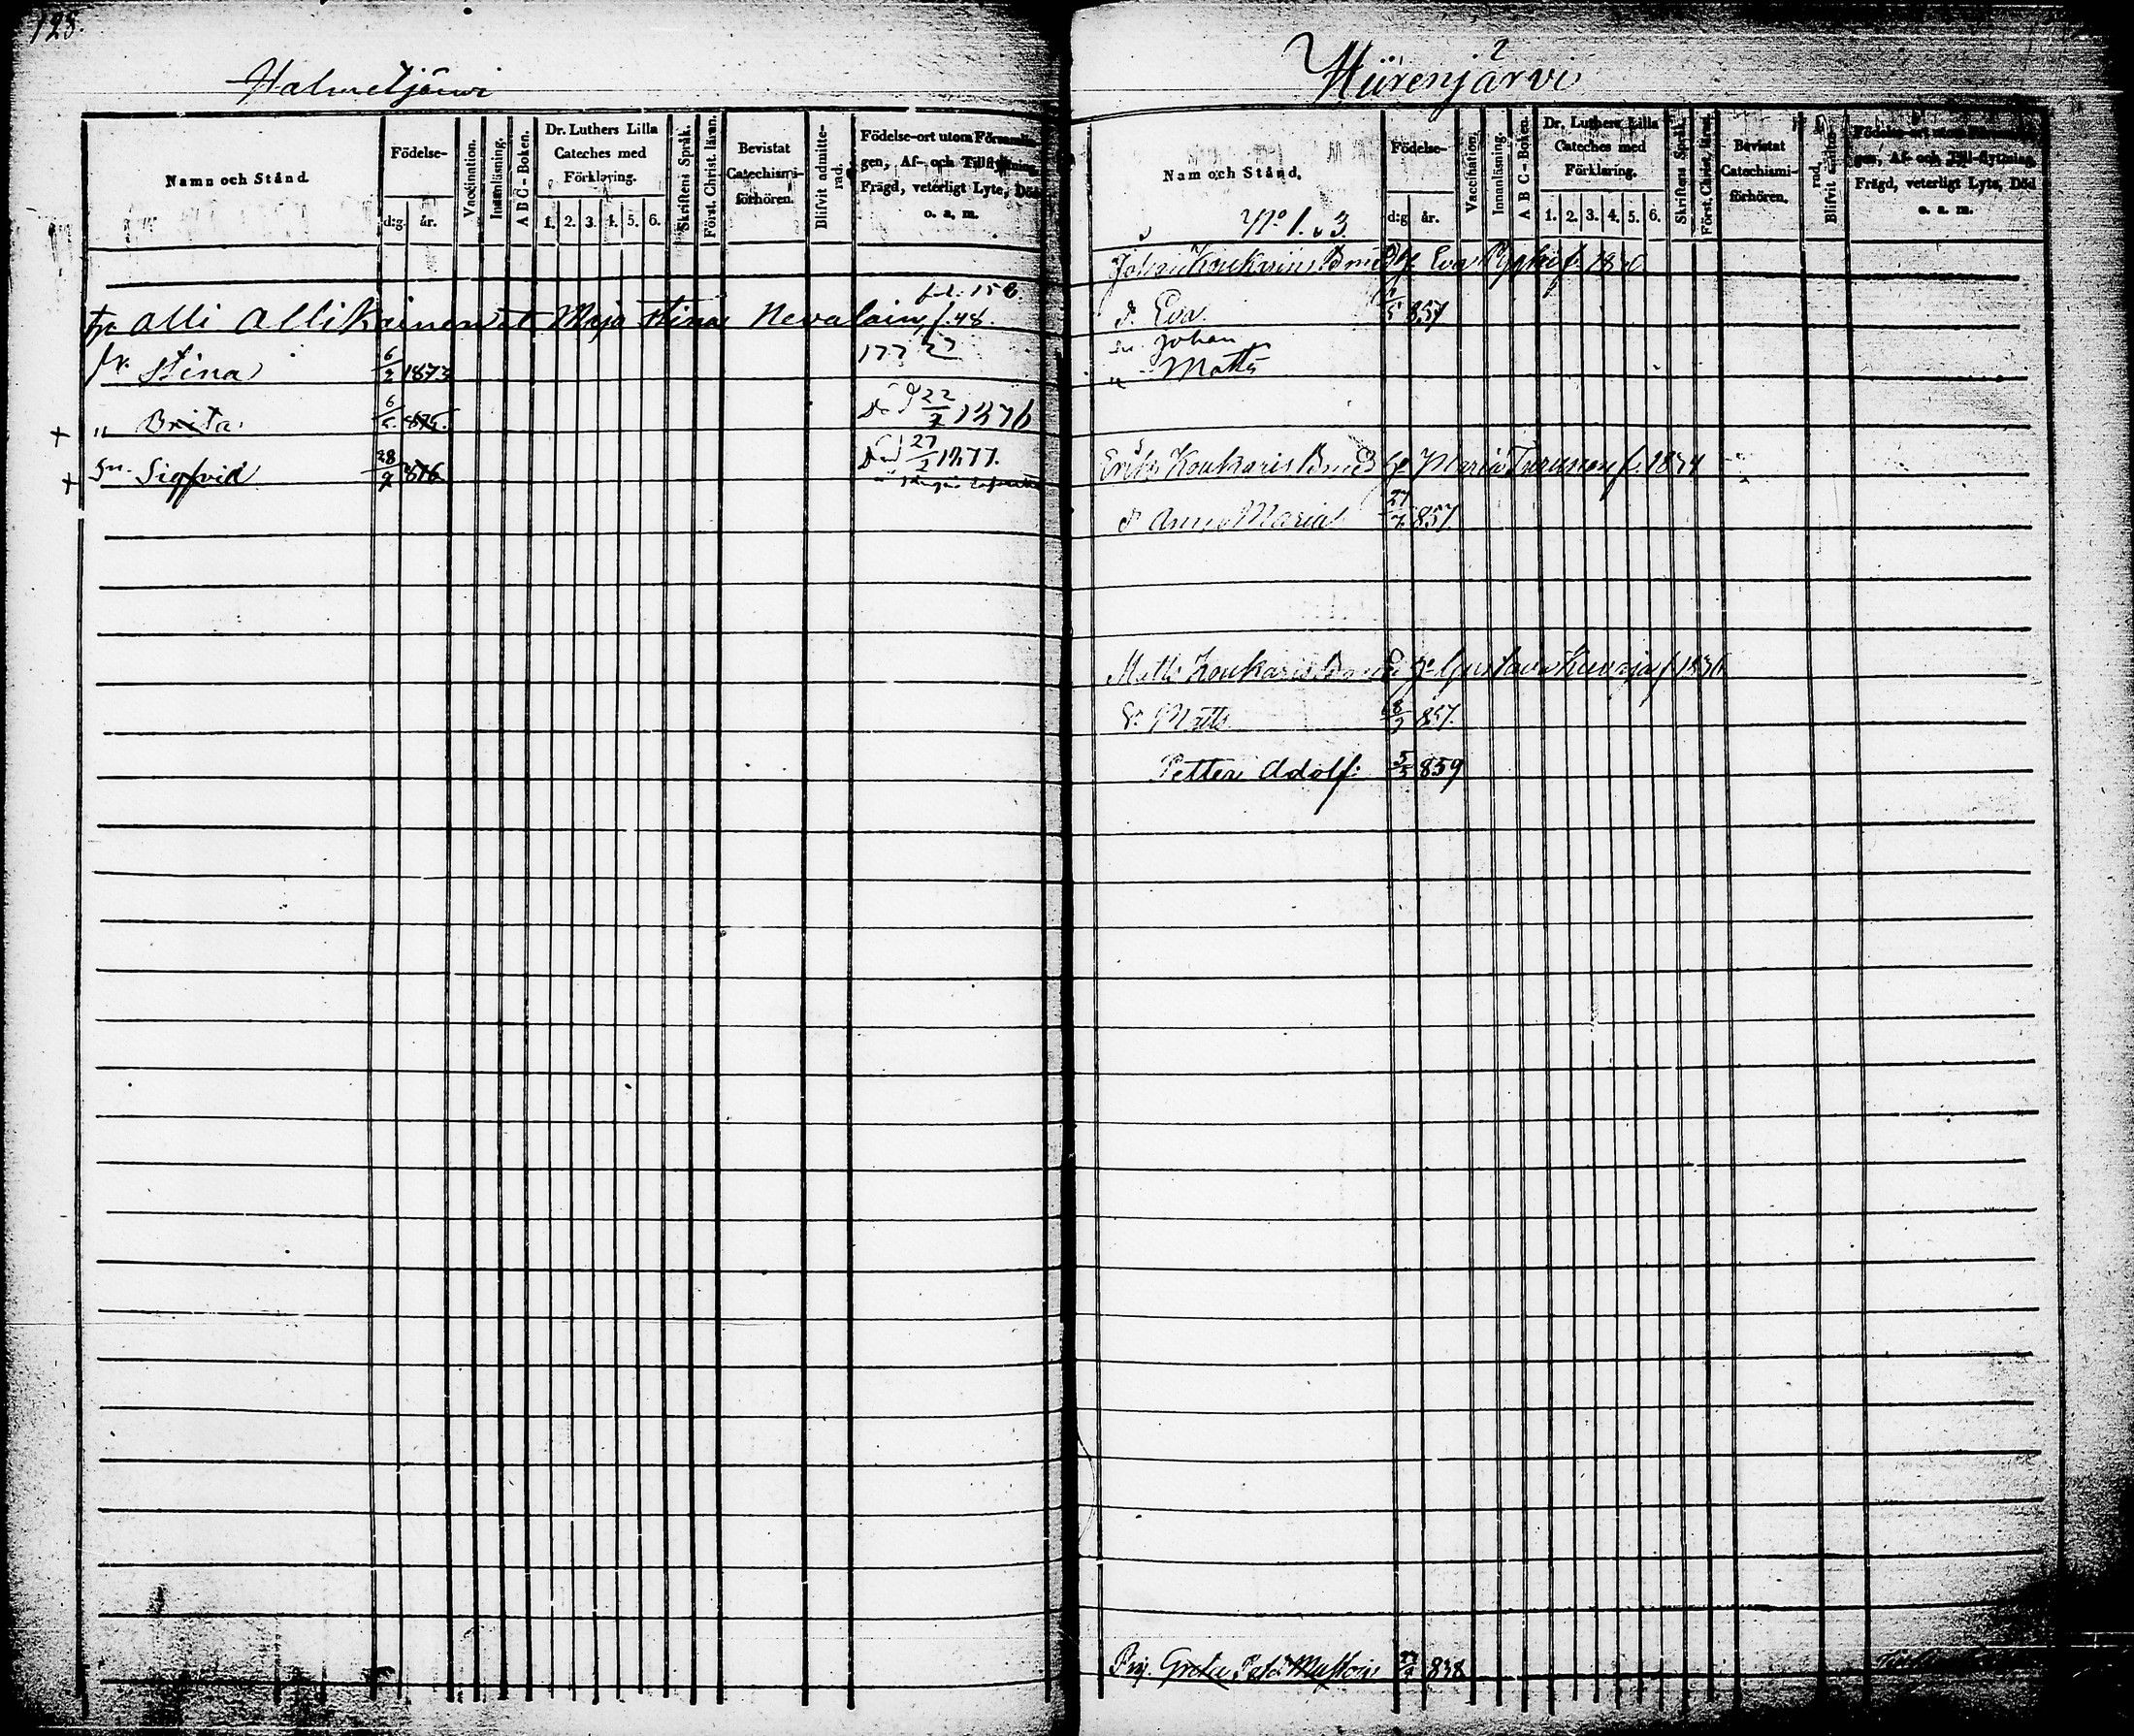 125.
Halmetjärvi
Namn och Stånd.
Födelse-
d:g
år.
Vaccination.
Innanläsning.
A B C - Boken.
Dr. Luthers Lilla
Cateches med
Förklaring.
1. 2. 3. 4. 5. 6.
Skriftens Språk.
Först. Christ. läran.
Bevistat
Catechismi-
förhören.
Blifvit admitte-
rad.
Födelse-ort utom Församlin-
gen, Af- och Tillflyttning,
Frägd, veterligt Lyte, Död
o. s. m.
fol. 158.
Alli Allikainen Maja Stina Nevalain f. 48.
Stina 6/2 1873
+ " Brita 6/5 875. Död 22/7 1876
+ Sn. Sigfrid 28/9 876 Död 27/2 1877.
Hiirenjärvi
Nam och Stånd.
No 1. 3.
Födelse-
d:g
år.
Vaccination.
Innanläsning.
A B C - Boken.
Dr. Luthers Lilla
Cateches med
Förklaring.
1. 2. 3. 4. 5. 6.
Skriftens Språk.
Först. Christ. läran.
Bevistat
Catechismi-
förhören.
rad.
Blifvit admitte-
Födelse-ort utom Församlin-
gen, Af- och Till-flyttning,
Frägd, veterligt Lyte, Död
o. s. m.
Johan Koukaris Eva
d. Eva 857
Sn. Johan
" Matts
Erik Koukaris Maria Turunen f. 1834
d. Anna Maria 27/7 857
Matts Koukaris Gustava
S. Matts 857.
Petter Adolf. 5/5 859
Pig. Greta 838